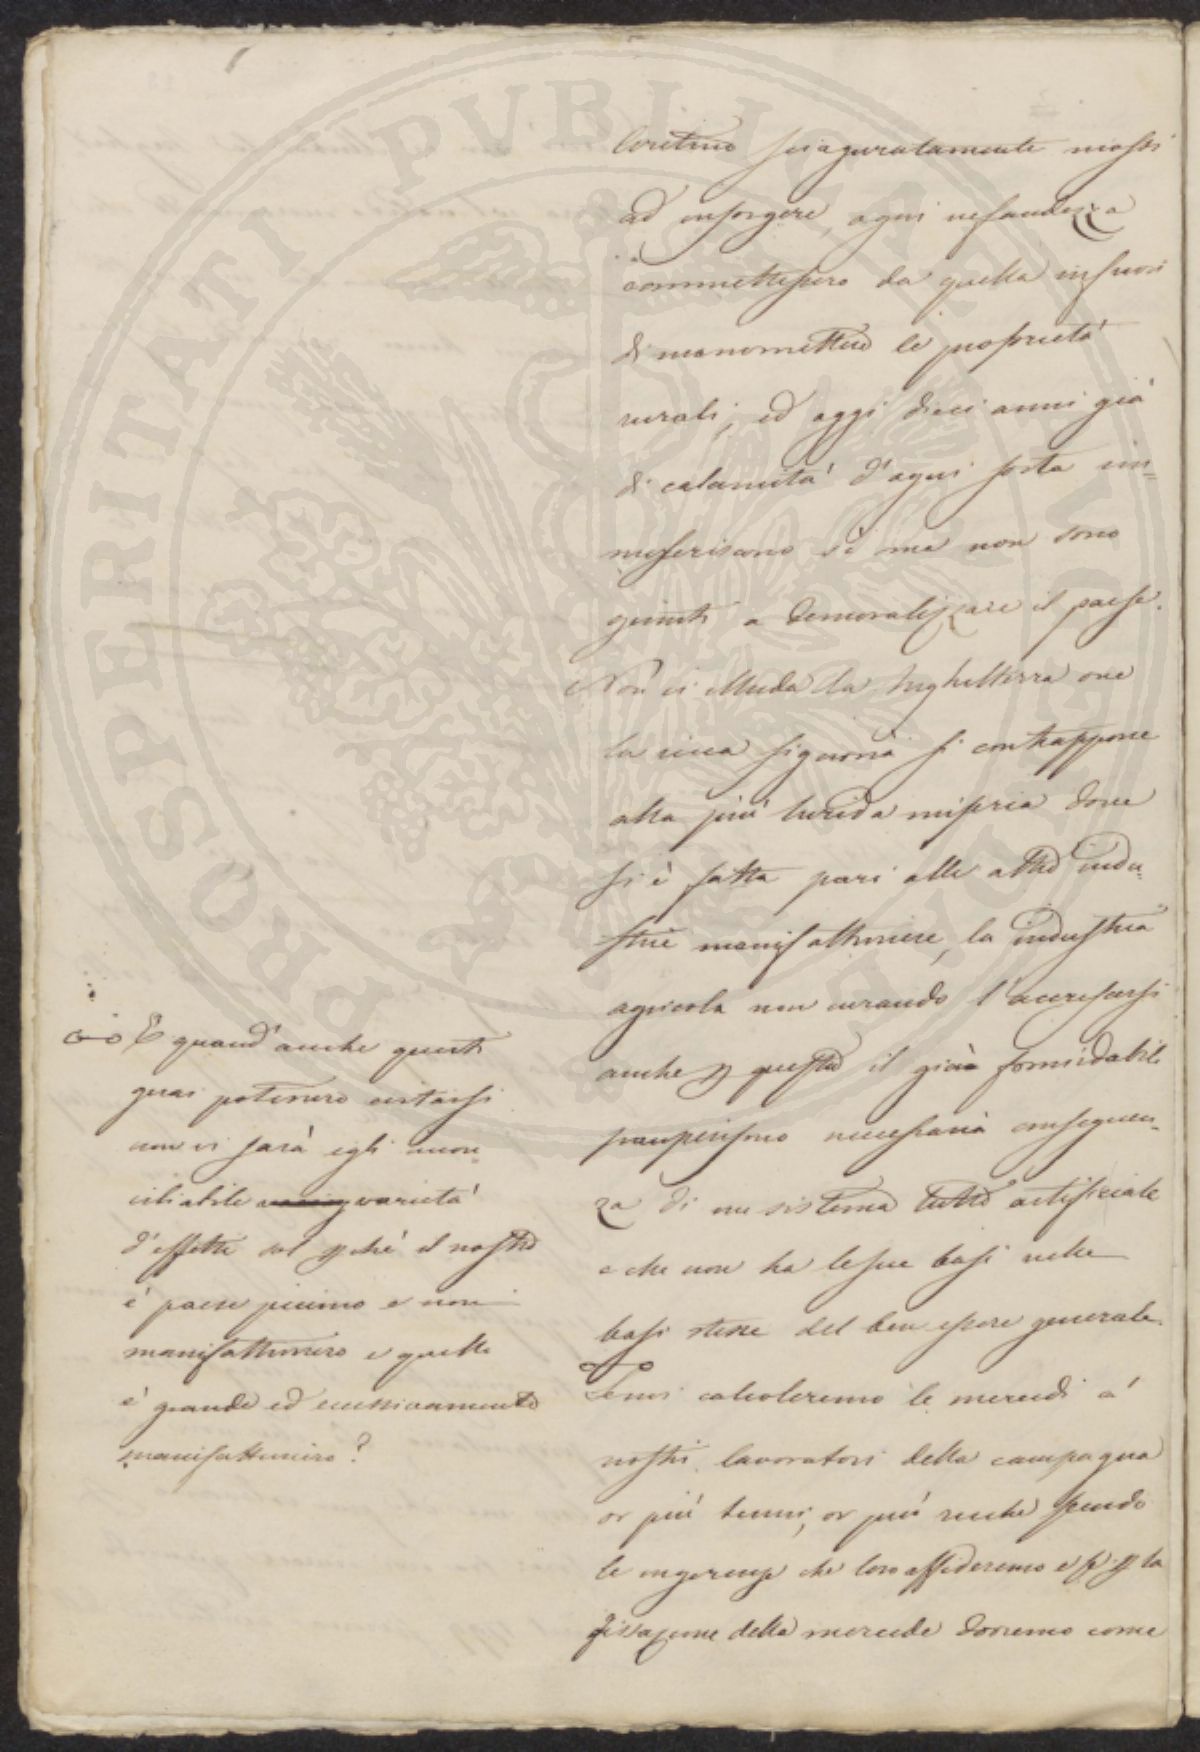 PROSPERITATI PVBLICAE
sciaguratamente mossi
ad insorgere, ogni nefandezza
commettessero da quella infuori
di manomettere le proprietà
rurali, ed oggi dieci anni già
di calamità d'ogni sorta im=
miseriscono sì ma non sono
giunti a demoralizzare il paese.
Non ci illuda la Inghilterra ove
la ricca signoria si contrappone
alla più lurida miseria dove
si è fatta pari alle altre indu=
strie manifatturiere, la industria
agricola non curando l'accrescersi
anche p questo il già formidabile
pauperismo necessaria conseguen=
za di un sistema tutto artificiale
e che non ha le sue basi nelle
basi stesse del ben essere generale.
Temi calcoleremo le mercedi a'
nostri lavoratori della campagna
or più tenui, or più ricche secondo
le ingerenze che loro affideremo e se p la
fissazione della mercede dovremo come
E quand'anche questi
guai potessero evitarsi
non vi sarà egli incon=
ciliabile varietà
d'effetti sol pchè il nostro
è paese piccino e non
manifatturiero e quello
è grande ed eccessivamente
manifatturiero?